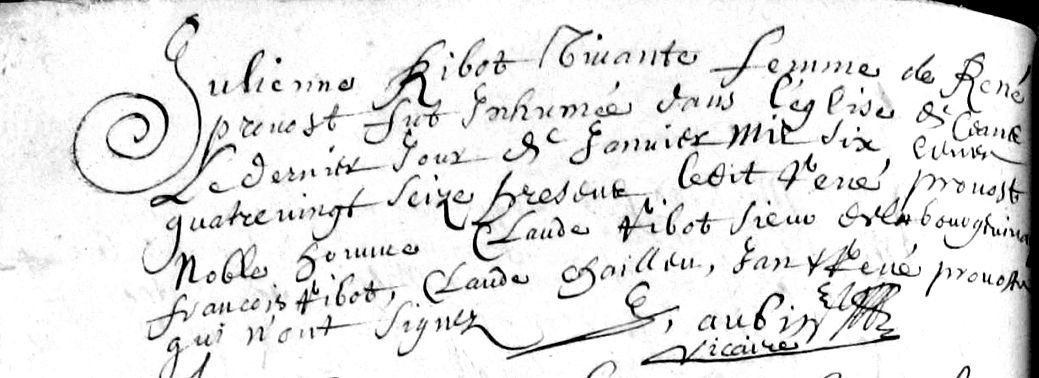 Julienne Ribot Vivante femme de René
provost fut Inhumée dans l'église de ceans
Le dernier Jour de Janvier Mil six
quatrevingt seize presens ledit René provost
Noble homme Claude Ribot sieur de la
francois Ribot, Claude chailleu, Jan & René provosts
qui n'ont signez, aubin
vicaire